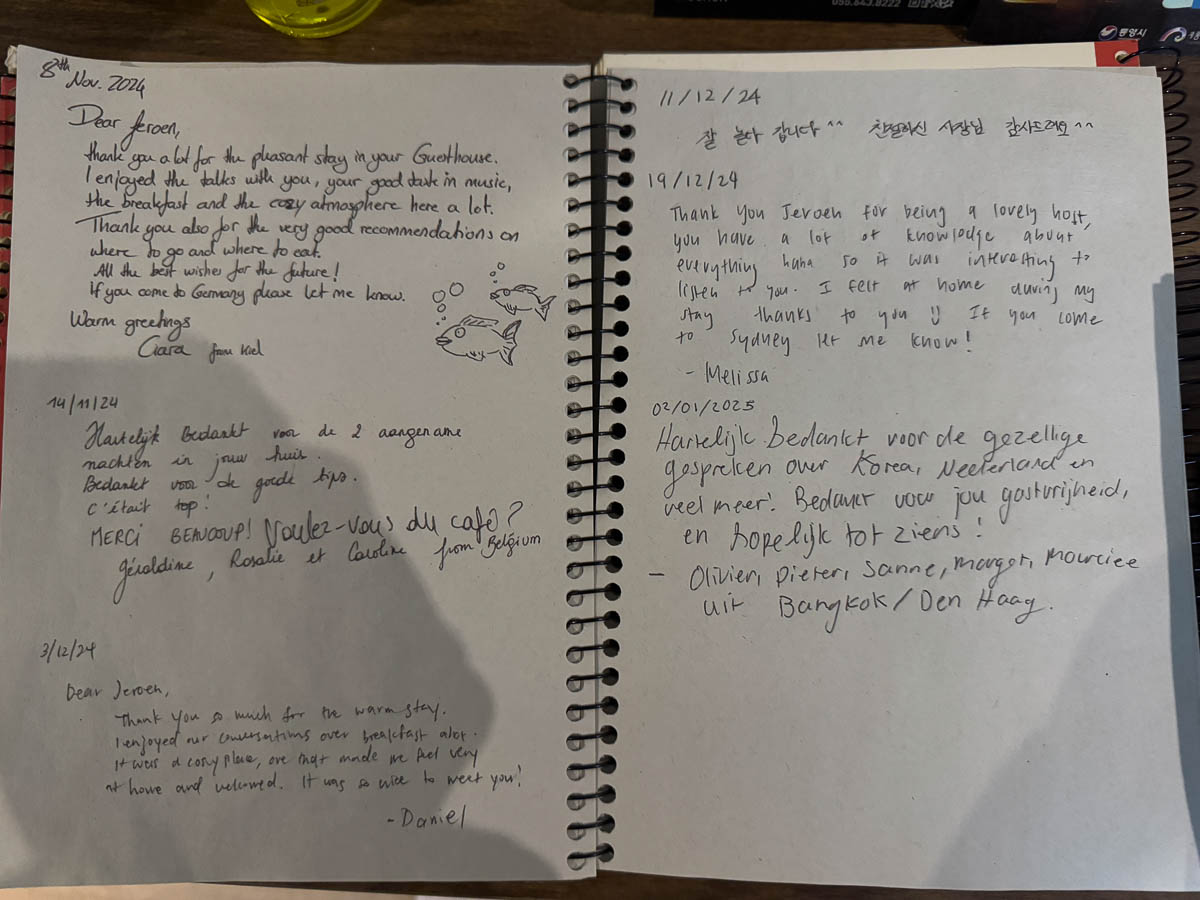 055.643.8222
통영시
8th Nov. 2024
Dear Jeroen,
thank you a lot for the pleasant stay in your Guesthouse.
I enjoyed the talks with you, your good taste in music,
the breakfast and the cozy atmosphere here a lot.
Thank you also for the very good recommendations on
where to go and where to eat.
All the best wishes for the future!
If you come to Germany please let me know.
Warm greetings
Ciara from Kiel
14/11/24
Hartelijk Bedankt voor de 2 aangename
nachten in jouw huis.
Bedankt voor de goede tips.
c'était top!
MERCI BEAUCOUP! Voulez-vous du café?
Géraldine, Rosalie et Caroline from Belgium
3/12/24
Dear Jeroen,
Thank you so much for the warm stay.
I enjoyed our conversations over breakfast alot.
It was a cosy place, one that made me feel very
at home and welcomed. It was so nice to meet you!
- Daniel
11/12/24
잘 놀다 갑니다 ^^ 친절하신 사장님 감사드려요 ^^
19/12/24
Thank you Jeroen for being a lovely host,
you have a lot of knowledge about
everything haha so it was interesting to
listen to you. I felt at home during my
stay thanks to you :) If you come
to Sydney let me know!
- Melissa
02/01/2025
Hartelijk bedankt voor de gezellige
gesprekken over Korea, Nederland en
veel meer! Bedankt voor jou gastvrijheid,
en hopelijk tot ziens!
- Olivier, Pieter, Sanne, Margot,
uit Bangkok/Den Haag.